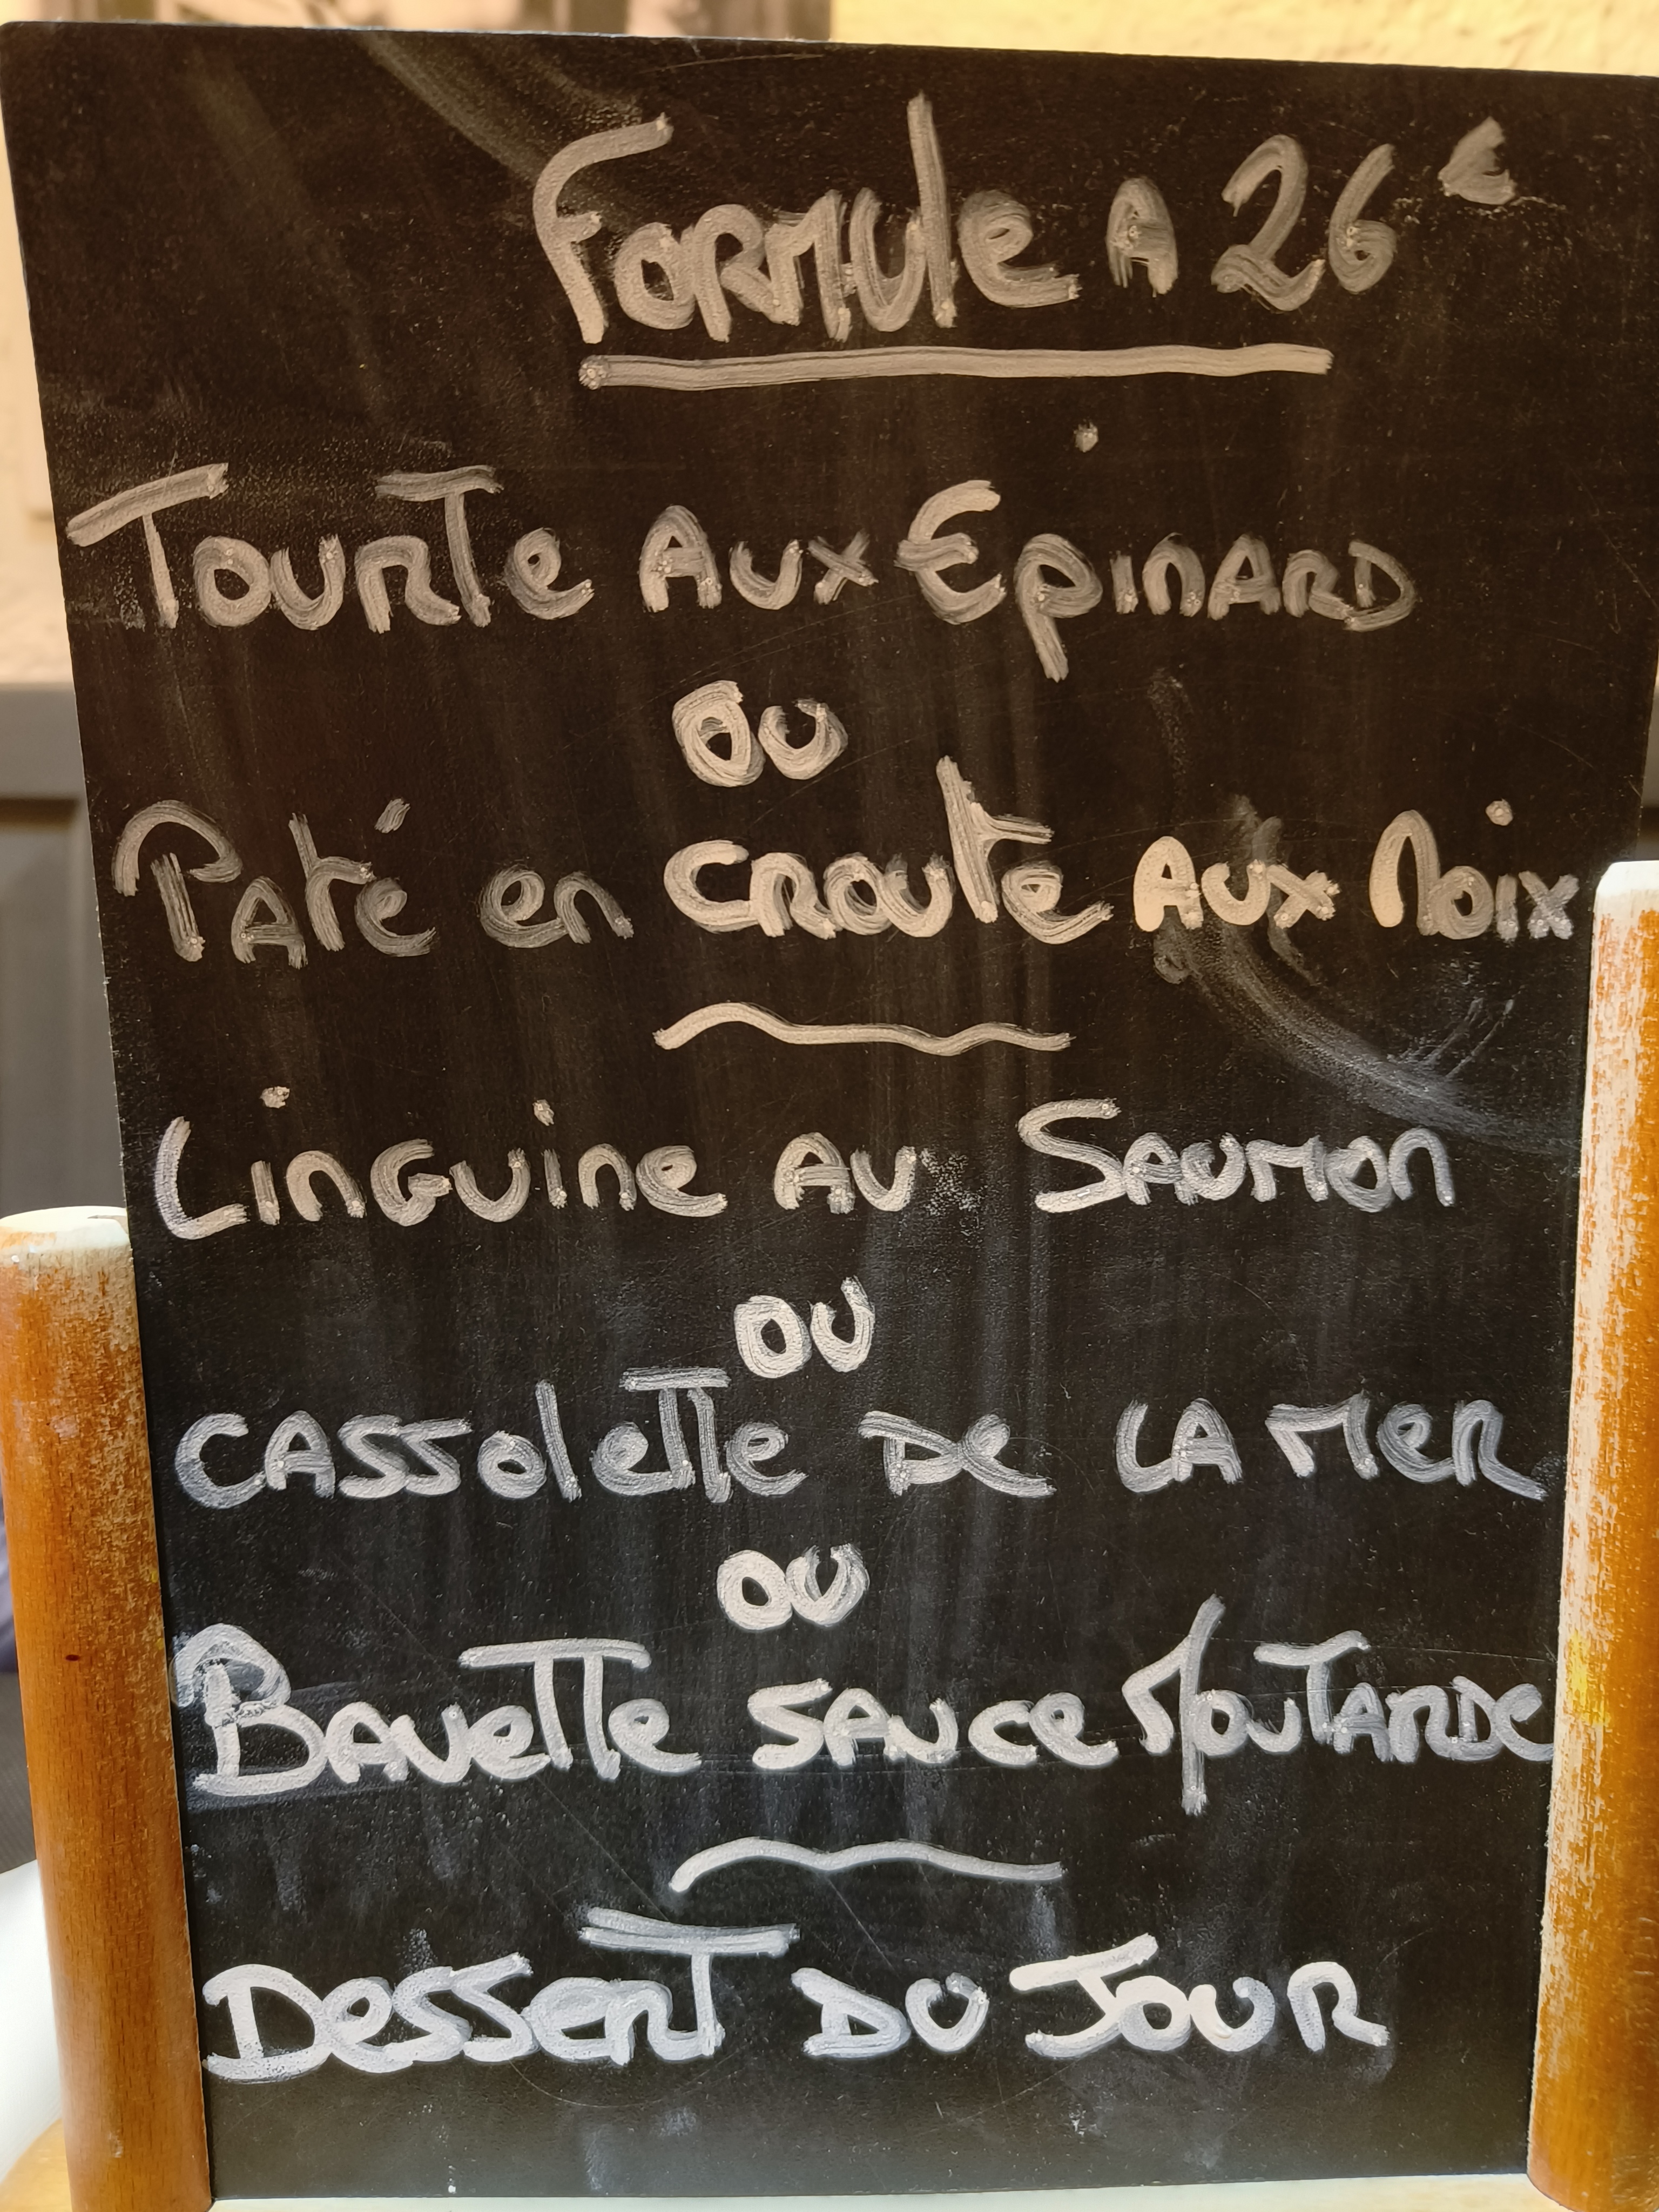 Formule A 26€
Tourte Aux Epinard
ou
Paté en croute Aux Noix
Linguine Au Saumon
ou
Cassolette De La Mer
ou
Bavette sauce Moutarde
Dessert Du Jour